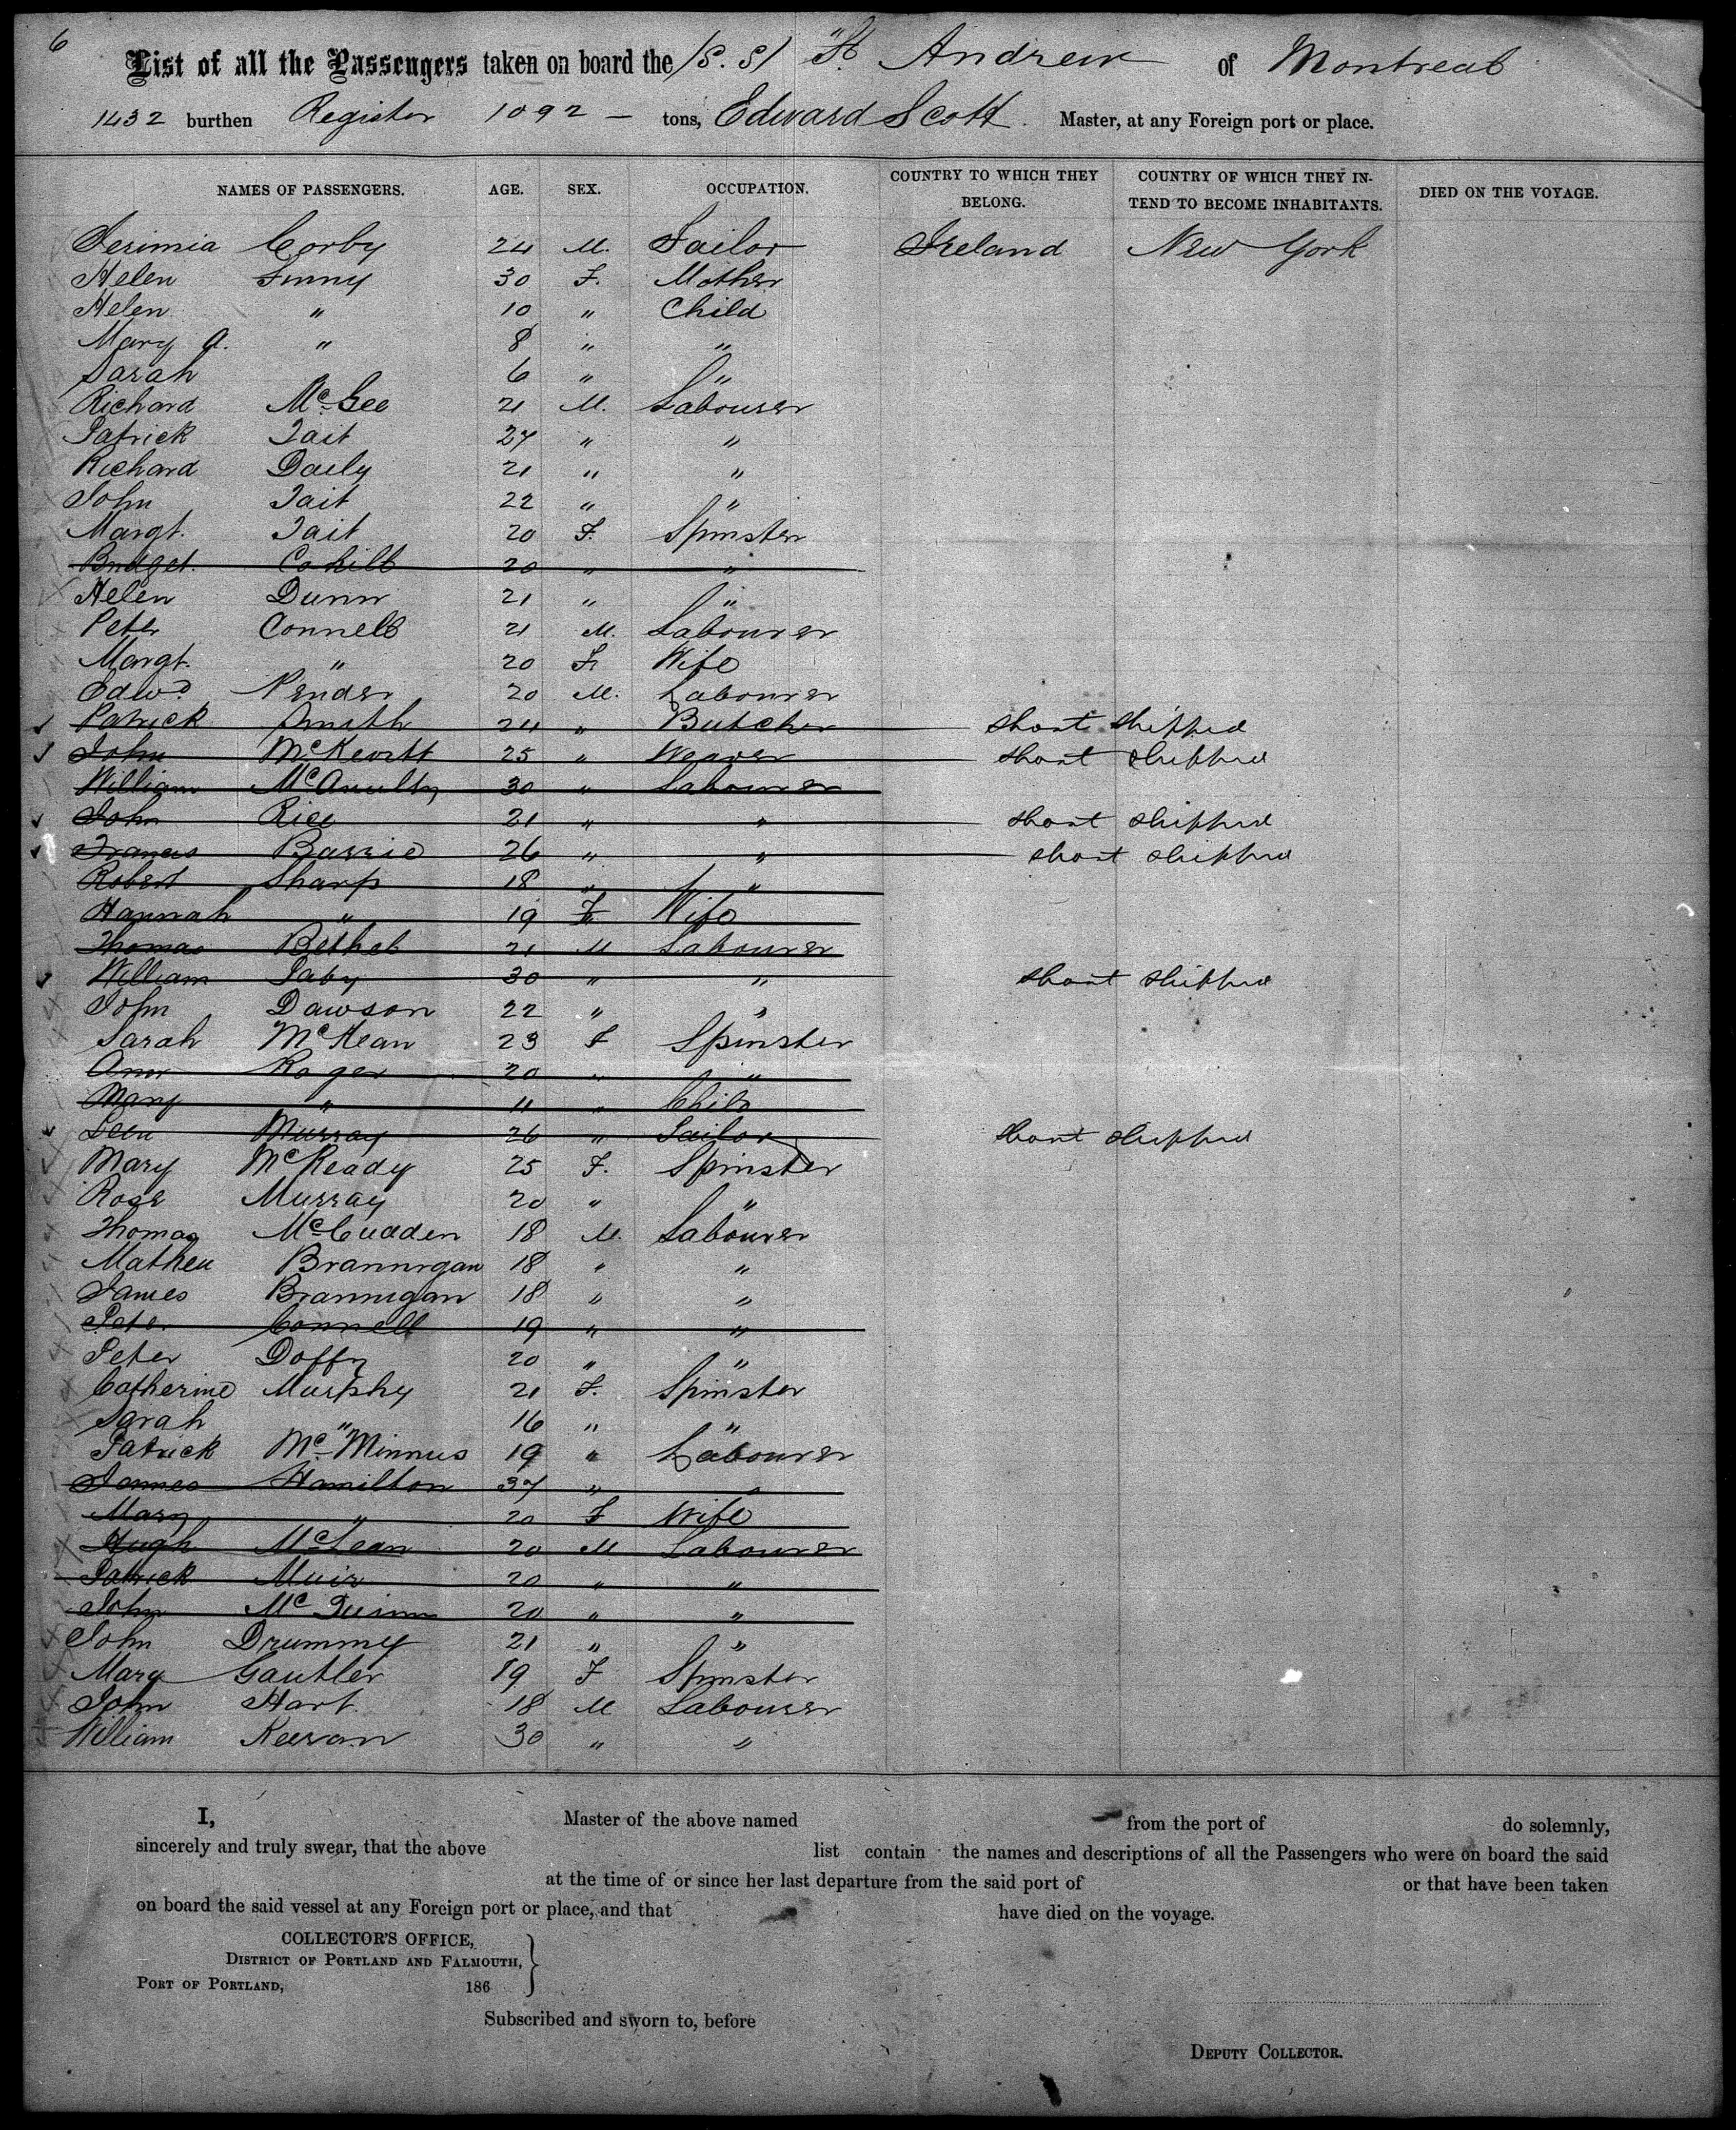 6
List of all the Passengers taken on board the (S.S) "St Andrew of Montreal
1432 burthen Register 1092 — tons, Edward Scott. Master, at any Foreign port or place.
NAMES OF PASSENGERS. AGE. SEX. OCCUPATION. COUNTRY TO WHICH THEY BELONG. COUNTRY OF WHICH THEY INTEND TO BECOME INHABITANTS. DIED ON THE VOYAGE.
Jerimia Corby 24 M. Sailor Ireland New York
Helen Finny 30 F. Mother
Helen " 10 " Child
Mary A. " 8 " "
Sarah 6 " "
Richard McGee 21 M. Labourer
Patrick Tait 27 " "
Richard Daily 21 " "
John Tait 22 " "
Margt. Tait 20 F. Spinster
Bridget. Cahill 20 " "
Helen Dunn 21 " "
Peter Connell 21 M. Labourer
Margt. " 20 F. Wife
Edwd Pender 20 M. Labourer
Patrick Smith 24 " Butcher short shipped
John McKevitt 25 " Weaver short shipped
William McAnulty 30 " Labourer
John Rice 21 " " short shipped
Francis Barrie 26 " " short shipped
Robert Sharp 18 " "
Hannah " 19 F. Wife
Thomas Bethel 21 M Labourer
William 30 " " short shipped
John Dawson 22 " "
Sarah McKean 23 F Spinster
Ann Roger 20 " "
Mary " 11 " Child
Murray 26 " Sailor short shipped
Mary McReady 25 F. Spinster
Rose Murray 20 " "
Thomas McCudden 18 M. Labourer
Matheu Brannigan 18 " "
James Brannigan 18 " "
Peter Connell 19 " "
Peter Doffy 20 " "
Catherine Murphy 21 F. Spinster
Sarah " 16 " "
Patrick McMinnus 19 " Labourer
James Hamilton 37 " "
Mary " 20 F Wife
Hugh McLean 20 M Labourer
Patrick Muir 20 " "
John McQuinn 20 " "
John Drummy 21 " "
Mary Gautler 19 F Spinster
John Hart. 18 M Labourer
William Keeran 30 " "
I, Master of the above named from the port of do solemnly,
sincerely and truly swear, that the above list contain the names and descriptions of all the Passengers who were on board the said
at the time of or since her last departure from the said port of or that have been taken
on board the said vessel at any Foreign port or place, and that have died on the voyage.
COLLECTOR'S OFFICE,
DISTRICT OF PORTLAND AND FALMOUTH, }
PORT OF PORTLAND, 186
Subscribed and sworn to, before
DEPUTY COLLECTOR.